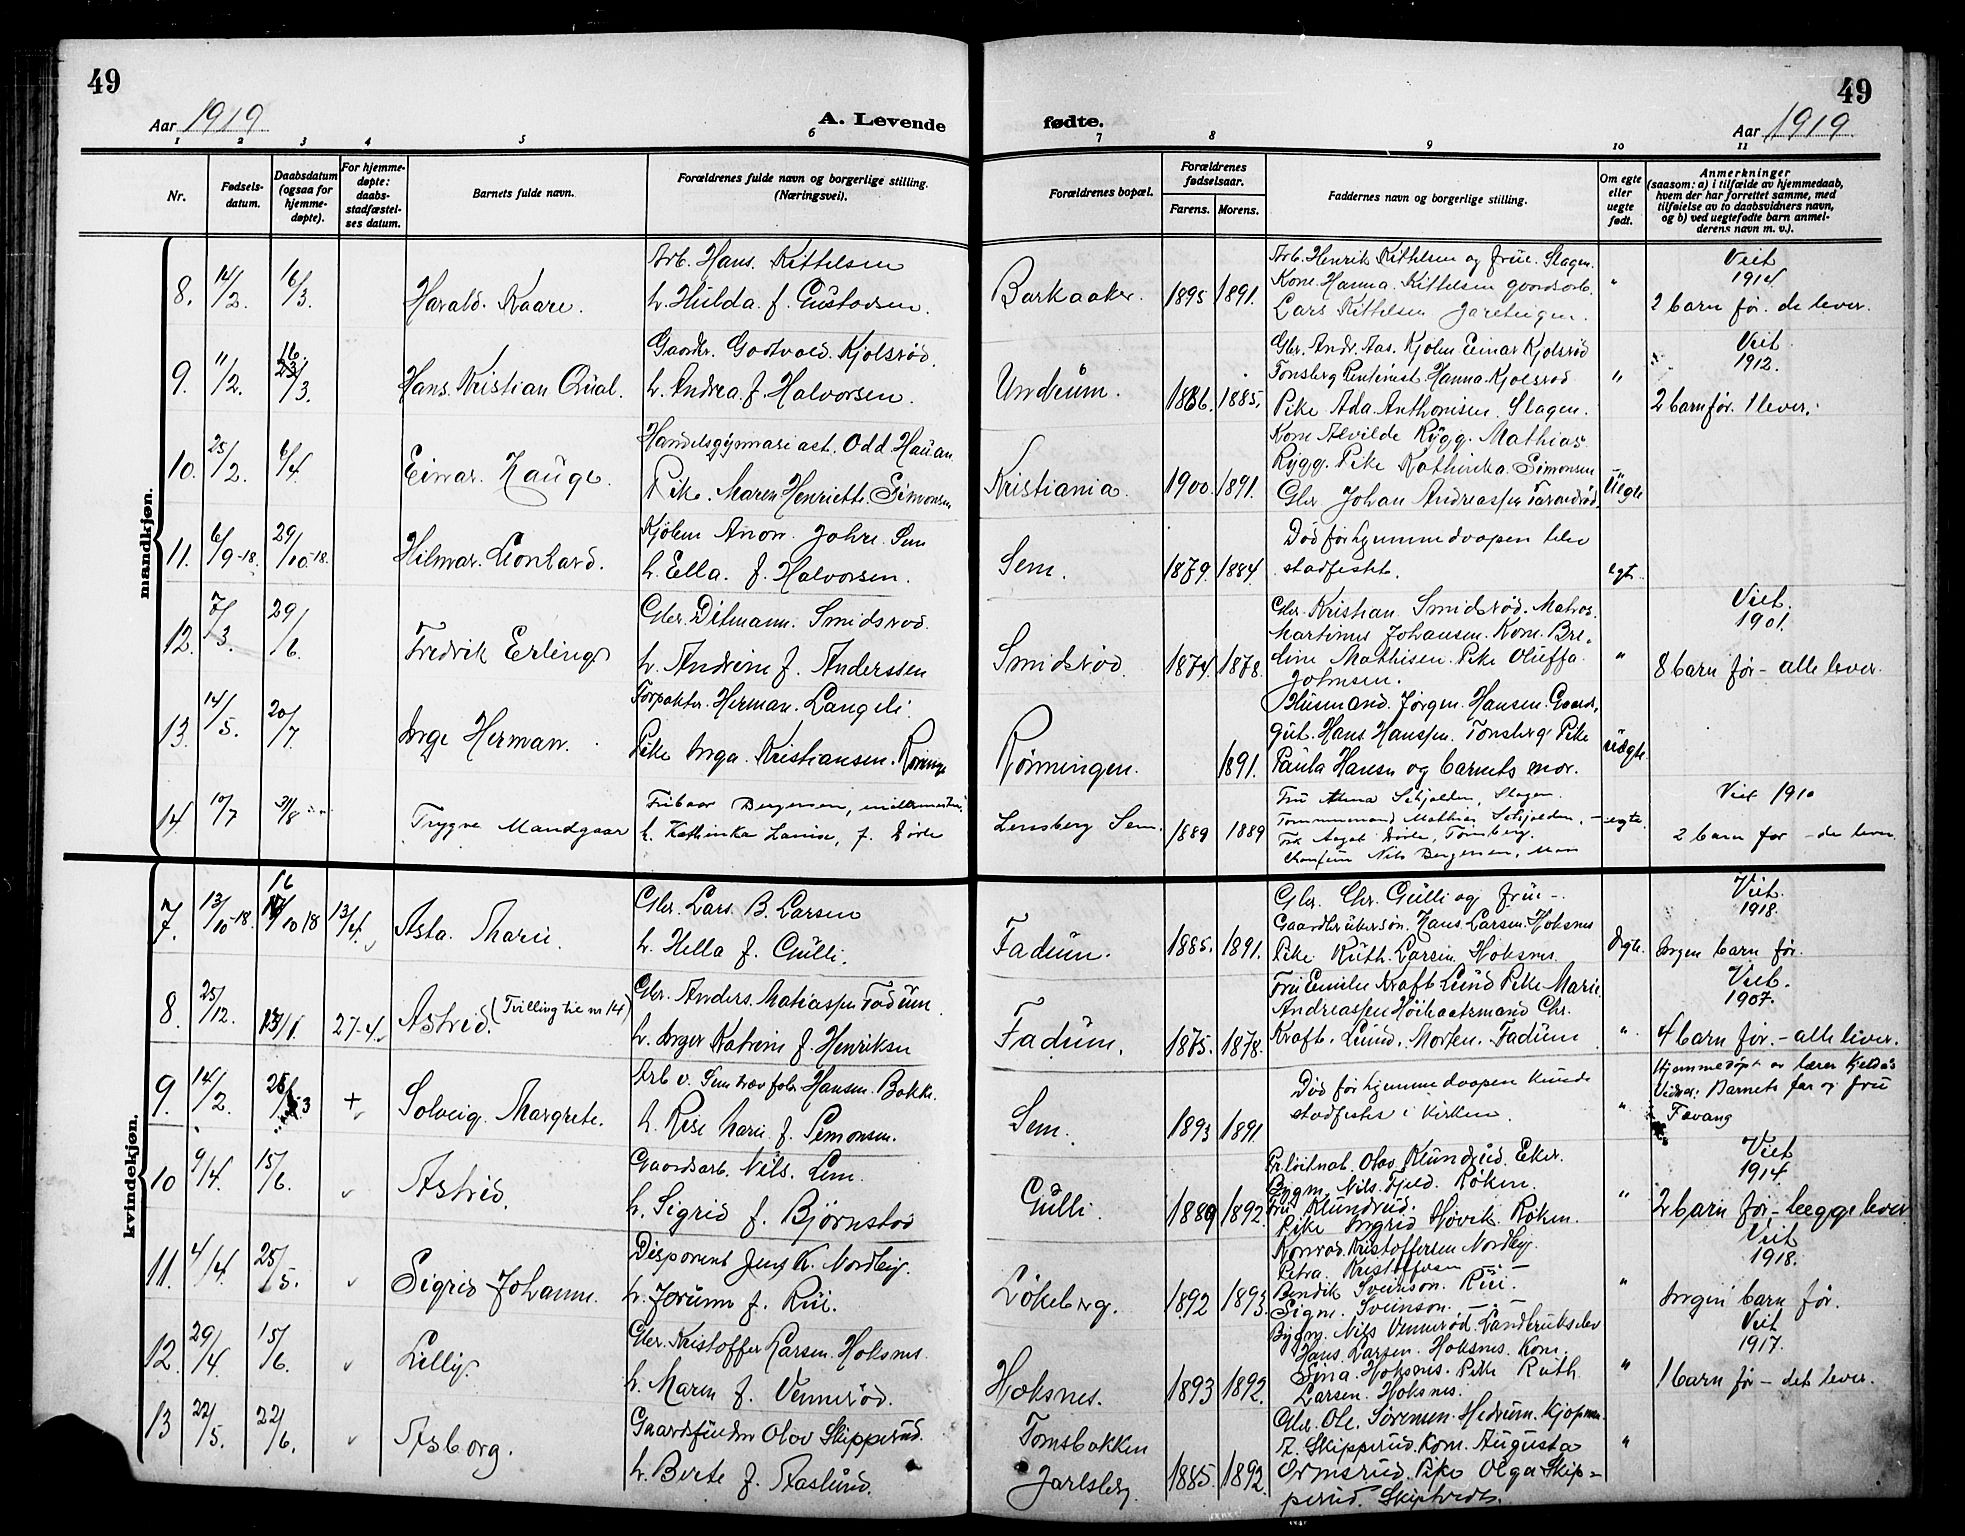 49
49
Aar 1919
A. Levende
fødte.
Aar 1919
1 2 3 4 5 6 7 8 9 10 11
Nr.
Fødsels-
datum.
Daabsdatum
(ogsaa for
hjemme-
døpte).
For hjemme-
døpte:
daabs-
stadfæstel-
ses datum.
Barnets fulde navn.
Forældrenes fulde navn og borgerlige stilling.
(Næringsvei).
Forældrenes bopæl.
Forældrenes
fødselsaar.
Farens. Morens.
Faddernes navn og borgerlige stilling.
Om egte
eller
uegte
født.
Anmerkninger
(saasom: a) i tilfælde av hjemmedaab,
hvem der har forrettet samme, med
tilføielse av to daabsvidners navn,
og b) ved uegtefødte barn anmel-
derens navn m. v.).
mandkjøn.
8. 14/2. 16/3. Harald Kaare.
Arb. Hans. Kittelsen
h. Hilda f. Gustavsen.
Barkaaker. 1895 1891.
Arb. Henrik Kittelsen og frue. Slagen.
Kone Hanna Kittelsen gaardsarb.
Lars Kittelsen Jareteigen.
"
Viet
1914
2 barn før. de lever.
9. 11/2. 16. 23/3. Hans Kristian Qual.
Gaardbr. Godtvald Kjølsrød.
h. Andrea f. Halvorsen.
Undrum. 1886. 1885.
Gbr. Andr. Aas. Kjøbm Einar Kjølsrød
Tønsberg Rentenist Hanna Kjølsrød
Pike Ada Anthonisen Slagen.
"
Viet.
1912.
2 barn før. 1 lever.
10. 25/2. 6/4. Einar Hauge.
Handelsgymnasiast. Odd Hauan
Pike. Maren Henriette Simonsen
Kristiania. 1900. 1891.
Kone Alvilde Rygg. Mathias
Rygg. Pike Kathinka Simonsen
Gbr Johan Andreassen
Uegte
11. 6/9-18. 29/10-18. Hilmar Leonhard.
Kjøbm Anon. Johre Sem
h. Ella f. Halvorsen.
Sem. 1879. 1884.
Død før hjemmedaapen blev
stadfestet.
egte.
12. 7/3. 29/6. Fredrik Erling
Gbr. Ditmann. Smidsrød.
h. Andrine f. Anderssen
Smidsrød. 1874. 1878.
Gbr. Kristian Smidsrød. Matros
Martinus Johansen. Kone Bre-
dine Mathisen. Pike Oluffa
Johnsen.
"
Viet.
1901.
8 barn før - alle lever.
13. 14/5. 20/7. Inge Herman.
Forpakter. Herman. Langeli.
Pike Inga Kristiansen.
Rønningen. 1891.
Husmand. Jørgen Hansen Gaard.
gut. Hans Hanssen. Tønsberg Pike
Paula Hansen og barnets mor.
uegte
14. 10/7 31/8 Trygve Mandgaar
Fribaar Bergersen,
h. Kathinka Lovise, f. Dørle
Lensberg Sem. 1889 1889
Fru Alma Schjolden, Slagen.
Tømmermand Mathias Schjolden, -
Frk Aagot Dørle, Tønsberg.
Chauffeur Nils Bergersen, Moss
egte.
Viet 1910
2 barn før - de lever
kvindekjøn.
7. 13/10-18. 16/10 18 13/4. Asta Marie.
Gbr. Lars B. Larsen
h. Hella f. Gulli.
Fadum. 1885. 1891.
Gbr. Chr. Gulli og frue -.
Gaardbrukersøn. Hans Larsen. Hoksnes
Pike Ruth Larsen Hoksnes.
Ægte.
Viet.
1918.
Ingen barn før.
8. 25/12. 13/1 27-4. Astrid. (Tvilling til nr 14)
Gbr. Anders Matiassen Fadum.
h. Inger Katrine f. Henriksen
Fadum. 1875. 1878.
Fru Emilie Kraft Lund Pike Marie
Andreassen Chr.
Kraft. Lund. Morten Fadum
"
Viet.
1907.
4 barn før. - alle lever.
9. 14/2. 25/3 + Solveig Margrete.
Arb v. Hansen Bakke.
h. Rise Marie f. Simonsen.
Sem. 1893 1891.
Død før hjemmedaapen kunde
stadfestes i kirken.
"
Hjemmedøpt av lærer Kjeldås
Vidner: Barnets far og fru
Favang
10 9/4. 15/6. Astrid.
Gaardsarb. Nils. Lem.
h. Sigrid f. Bjørnstad
Gulli. 1889 1892.
Pr.løitnat. Olav Klundrud. Eker.
Bygm. Nils. Fjeld. Røken.
Fru Klundrud.
Pike Ingrid Høvik. Røken.
"
Viet
1914.
2 barn før - begge lever
11. 4/4. 25/5. Sigrid Johanne.
Disponent Jens K. Nordby.
h. Jorunn f. Rui.
Løkeberg. 1892 1893
Konrad Kristoffersen Nordby.
Petra Kristoffersen -
Bendik Sveinson. Rui.
Sign. Sveinson. - -
"
Viet
1918.
Ingen barn før.
12. 29/4. 15/6. Lilly.
Gbr. Kristoffer Larsen. Hoksnes.
h. Maren f. Vennerød.
Hoksnes. 1893 1892.
Bygm. Nils Vennerød. Landbrukselev
Hans Larsen. Hoksnes. Kone.
Sina Hoksnes. Pike Ruth
Larsen. Hoksnes.
"
Viet
1917.
1 barn før - det lever.
13 22/5. 22/6. Asborg.
Gaardsfuldm Olav Skipperud.
h. Berte f. Aaslund.
Tomsbakken
Jarlsberg. 1885. 1892.
Gbr. Ole Sørensen Hedrum. Kjøpm.
A. Skipperud. Kone Augusta
Ormsrud. Pike Olga Skip-
perud. Skiptvedt.
"